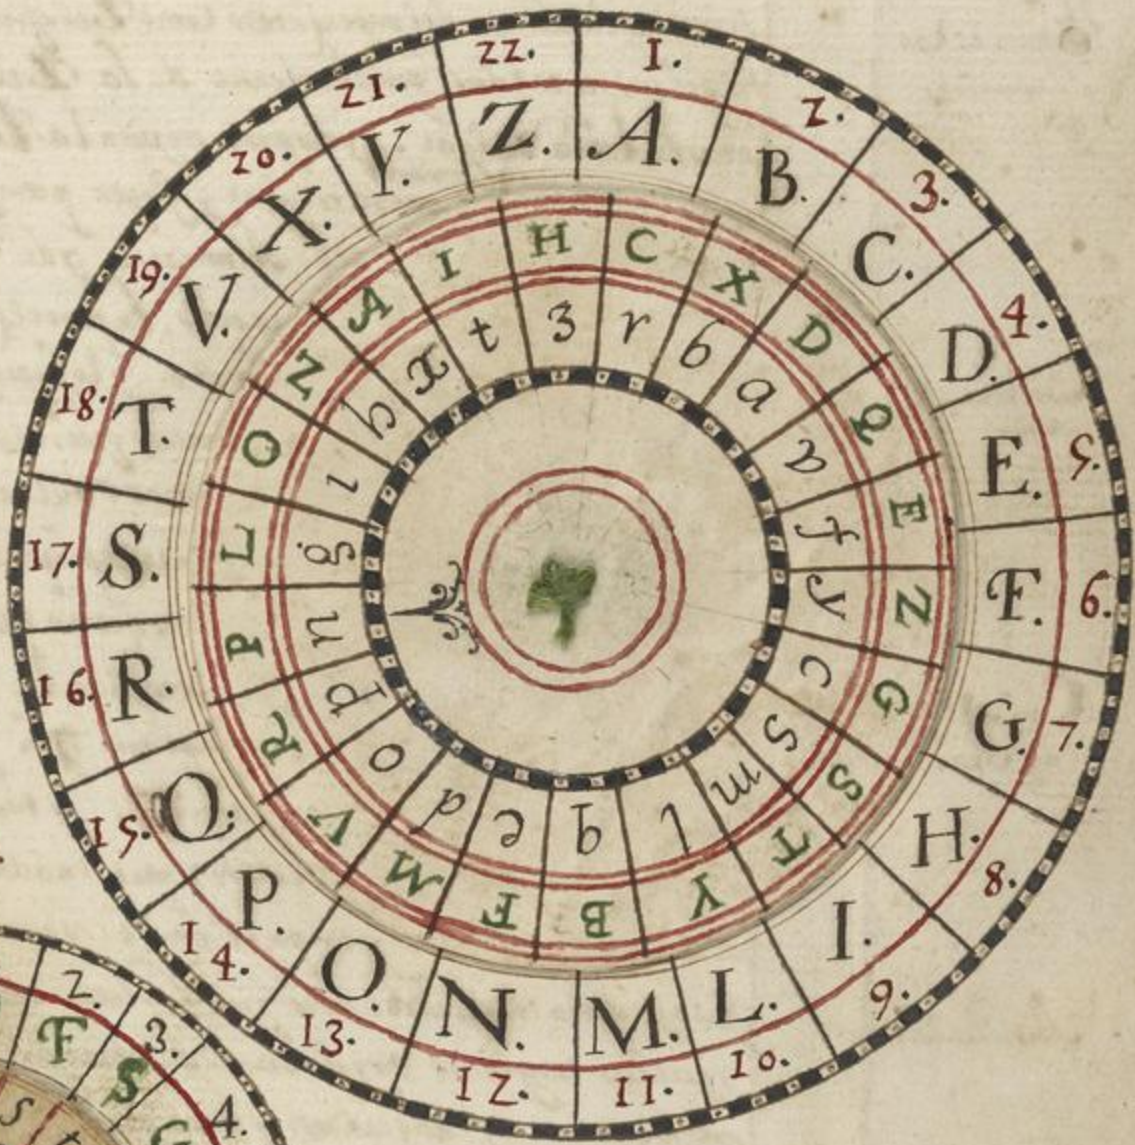 1. 2. 3. 4. 5. 6. 7. 8. 9. 10. 11. 12. 13. 14. 15. 16. 17. 18. 19. 20. 21. 22.
A. B. C. D. E. F. G. H. I. L. M. N. O. P. Q. R. S. T. V. X. Y. Z.
C X D Q E Z G S T Y B F M V R P L O N A I H
r b a v f y c s m l q e d o p n g ı h x t z
2. 3. 4.
F S G
s